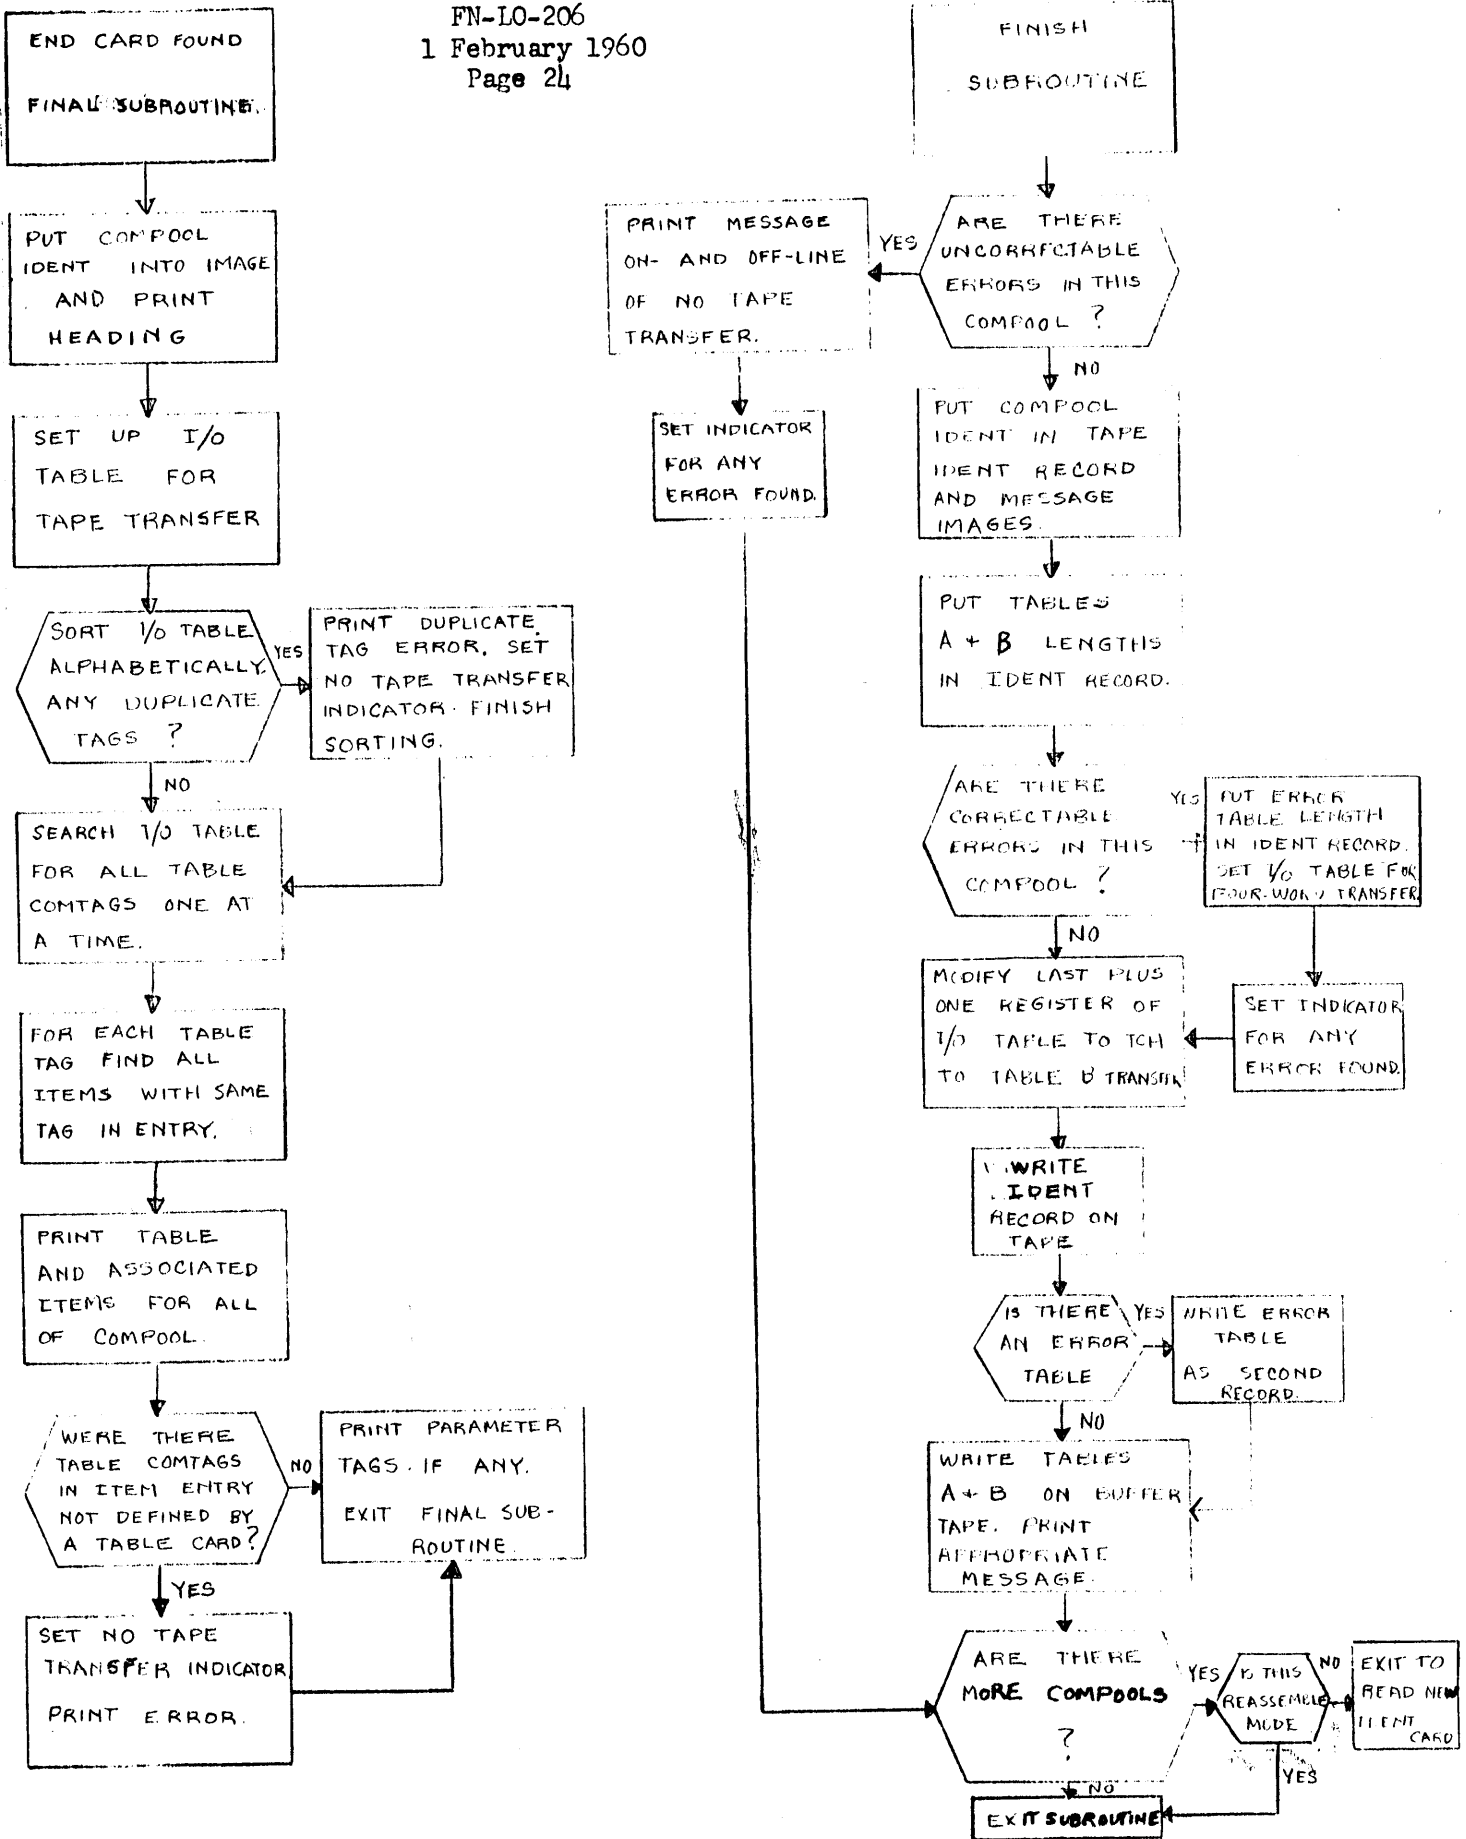 FN-LO-206
1 February 1960
Page 24
END CARD FOUND
FINAL SUBROUTINE.
PUT COMPOOL
IDENT INTO IMAGE
AND PRINT
HEADING
SET UP I/O
TABLE FOR
TAPE TRANSFER
SORT I/O TABLE
ALPHABETICALLY
ANY DUPLICATE
TAGS ?
YES
PRINT DUPLICATE
TAG ERROR. SET
NO TAPE TRANSFER
INDICATOR. FINISH
SORTING.
NO
SEARCH I/O TABLE
FOR ALL TABLE
COMTAGS ONE AT
A TIME.
FOR EACH TABLE
TAG FIND ALL
ITEMS WITH SAME
TAG IN ENTRY.
PRINT TABLE
AND ASSOCIATED
ITEMS FOR ALL
OF COMPOOL.
WERE THERE
TABLE COMTAGS
IN ITEM ENTRY
NOT DEFINED BY
A TABLE CARD?
NO
PRINT PARAMETER
TAGS. IF ANY.
EXIT FINAL SUB-
ROUTINE.
YES
SET NO TAPE
TRANSFER INDICATOR
PRINT ERROR.
FINISH
SUBROUTINE
ARE THERE
UNCORRECTABLE
ERRORS IN THIS
COMPOOL ?
YES
PRINT MESSAGE
ON- AND OFF-LINE
OF NO TAPE
TRANSFER.
SET INDICATOR
FOR ANY
ERROR FOUND.
NO
PUT COMPOOL
IDENT IN TAPE
IDENT RECORD
AND MESSAGE
IMAGES.
PUT TABLES
A + B LENGTHS
IN IDENT RECORD.
ARE THERE
CORRECTABLE
ERRORS IN THIS
COMPOOL ?
YES
PUT ERROR
TABLE LENGTH
IN IDENT RECORD.
SET I/O TABLE FOR
FOUR-WORD TRANSFER.
SET INDICATOR
FOR ANY
ERROR FOUND.
NO
MODIFY LAST PLUS
ONE REGISTER OF
I/O TABLE TO TCH
TO TABLE B TRANSFER
WRITE
IDENT
RECORD ON
TAPE
IS THERE
AN ERROR
TABLE
YES
WRITE ERROR
TABLE
AS SECOND
RECORD.
NO
WRITE TABLES
A + B ON BUFFER
TAPE. PRINT
APPROPRIATE
MESSAGE.
ARE THERE
MORE COMPOOLS
?
YES
IS THIS
REASSEMBLE
MODE
NO
EXIT TO
READ NEW
IDENT
CARD
YES
NO
EXIT SUBROUTINE